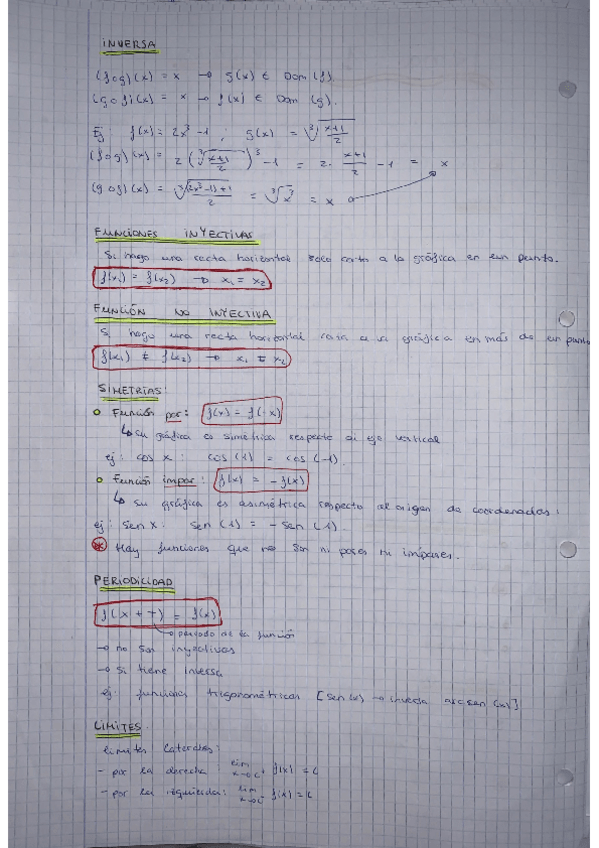 INVERSA
(f∘g)(x) = x → g(x) ∈ Dom (f).
(g∘f)(x) = x → f(x) ∈ Dom (g).
Ej: f(x) = 2x³ - 1 ; g(x) = ∛((x+1)/2)
(f∘g)(x) = 2 (∛((x+1)/2))³ - 1 = 2 · (x+1)/2 - 1 = x
(g∘f)(x) = ∛(((2x³-1)+1)/2) = ∛(x³) = x
FUNCIONES INYECTIVAS
Si hago una recta horizontal solo corta a la gráfica en un punto.
f(x₁) = f(x₂) → x₁ = x₂
FUNCIÓN NO INYECTIVA
Si hago una recta horizontal corta a la gráfica en más de un punto
f(x₁) ≠ f(x₂) → x₁ ≠ x₂
SIMETRIAS:
Función par: f(x) = f(-x)
↳ su gráfica es simétrica respecto al eje vertical
ej: cos x : cos (1) = cos (-1).
Función impar: f(x) = -f(x)
↳ su gráfica es asimétrica respecto al origen de coordenadas:
ej: sen x: sen (1) = - sen (1).
* Hay funciones que no son ni pares ni impares.
PERIODICIDAD
f(x + T) = f(x)
→ periodo de la función
→ no son inyectivas
→ si tiene inversa
ej: funciones trigonométricas [sen(x) → inversa arcsen (x)]
LIMITES.
limites laterales:
- por la derecha: lim x→c⁺ f(x) = L
- por la izquierda: lim x→c⁻ f(x) = L